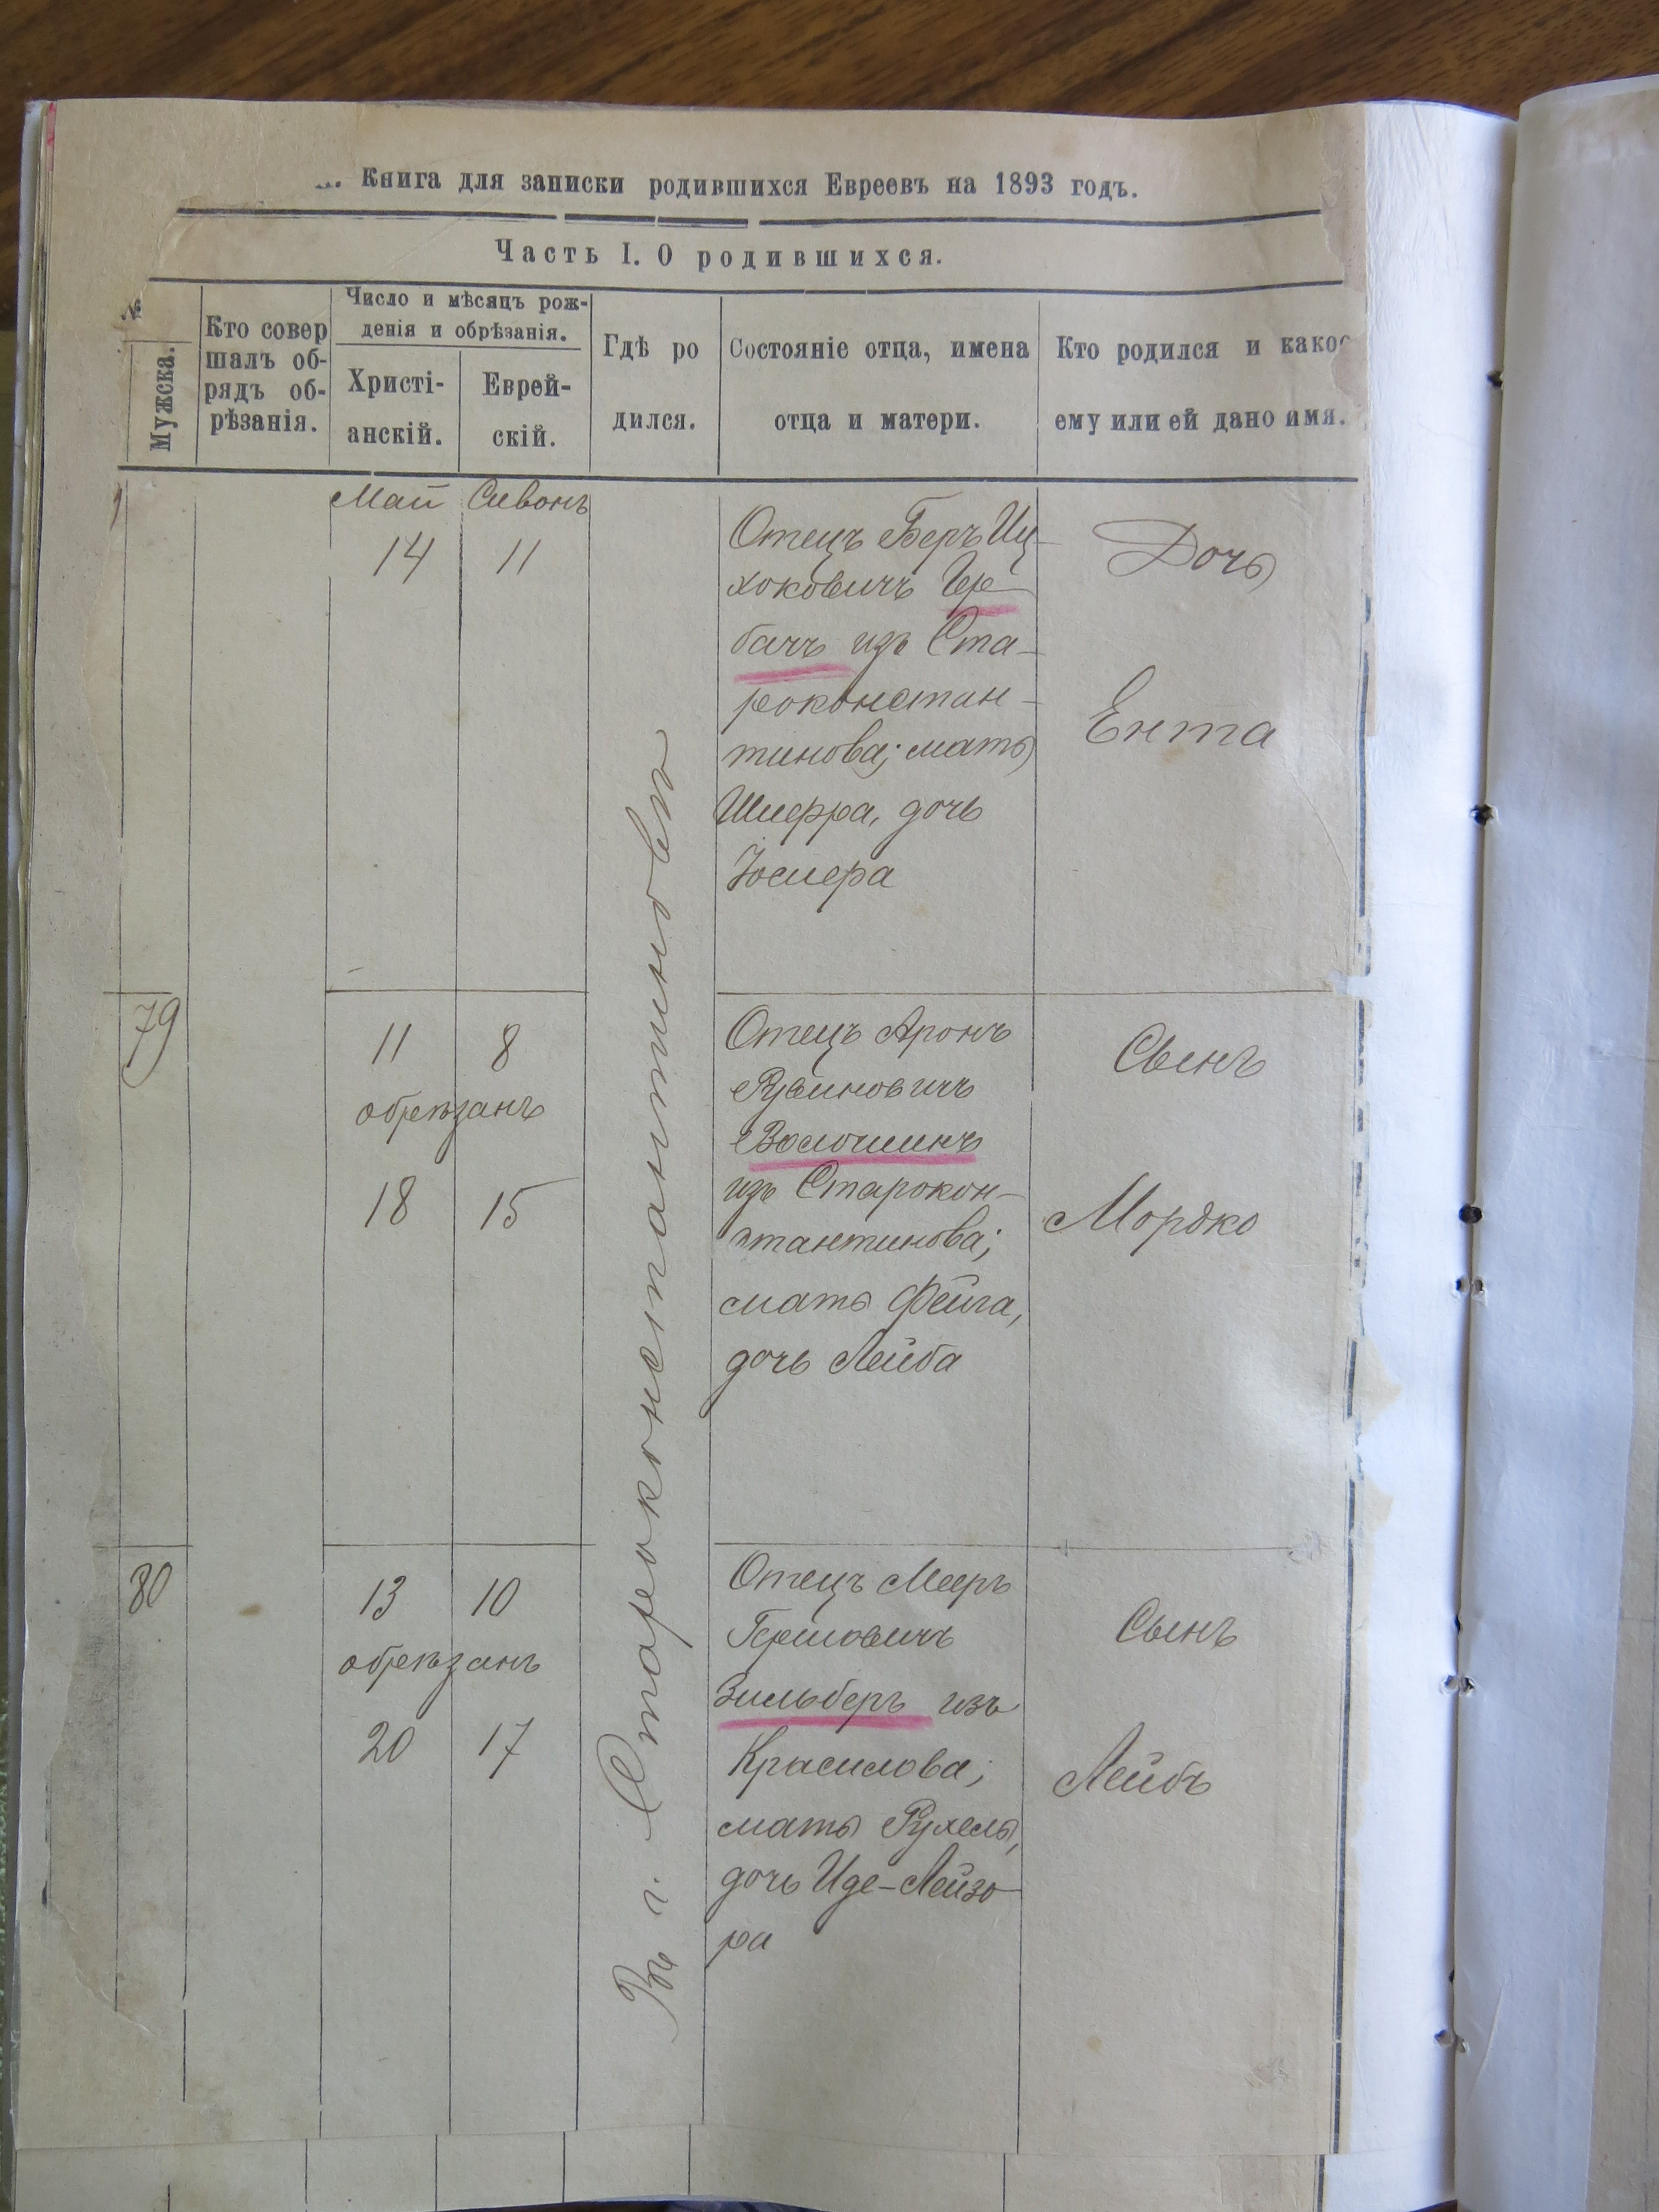 Книга для записки родившихся Евреевъ на 1893 годъ.
Часть I. О родившихся.
№
Мужска.
Кто совер
шалъ об-
рядъ об-
рѣзанія.
Число и мѣсяцъ рож-
денія и обрѣзанія.
Христі-
анскій.
Еврей-
скій.
Гдѣ ро
дился.
Состояніе отца, имена
отца и матери.
Кто родился и какое
ему или ей дано имя.
Май Сивонъ
14 11
Отецъ Беръ Иц-
хоковичъ Гер-
бачъ изъ Ста-
роконстан-
тинова; мать
Шифра, дочь
Іосифа
Дочь
Ента
Въ г. Староконстантиновѣ
79
11 8
обрѣзанъ
18 15
Отецъ Аронъ
Рувиновичъ
Волошинъ
изъ Старокон-
стантинова;
мать Фейга,
дочь Лейба
Сынъ
Мордко
80
13 10
обрѣзанъ
20 17
Отецъ Мееръ
Гершовичъ
Зильберъ изъ
Красилова;
мать Рухель,
дочь Иде-Лейзо
ра
Сынъ
Лейбъ